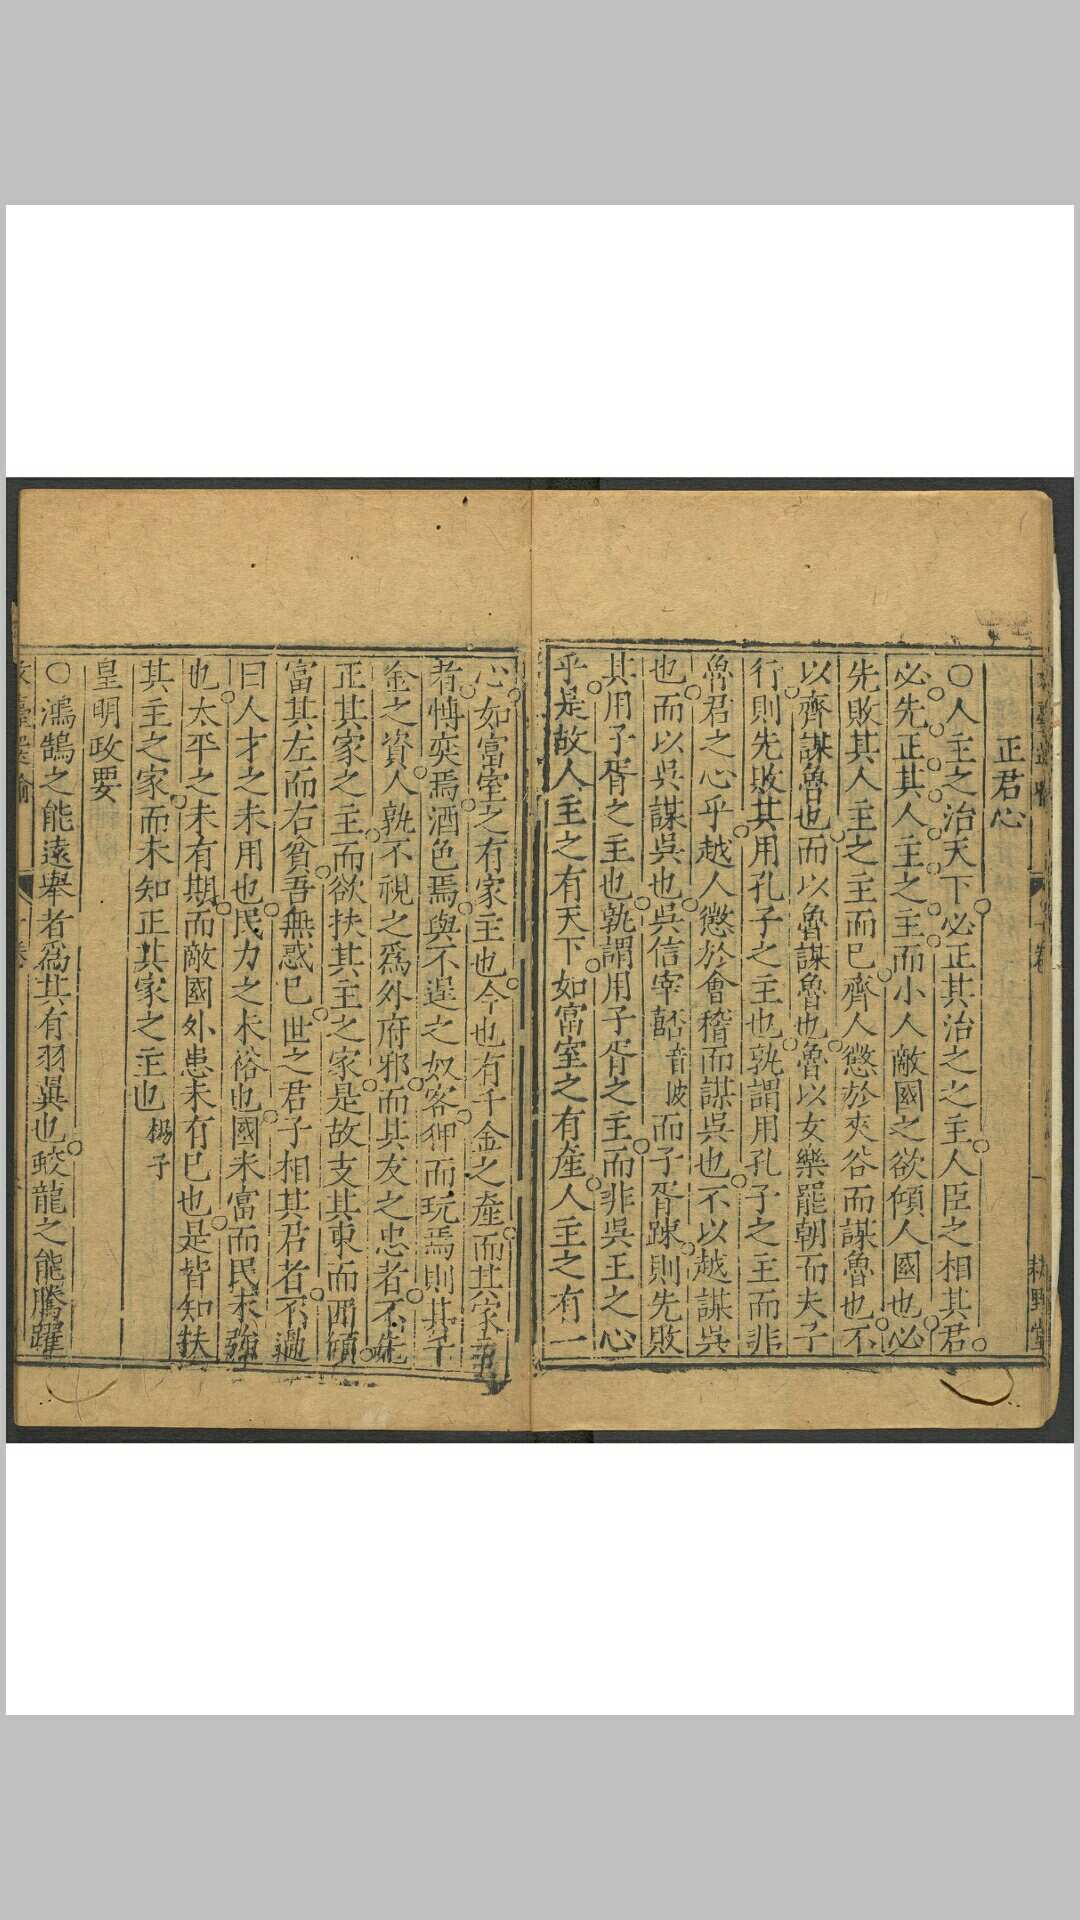 正君心
○人主之治天下必正其治之之主人臣之相其君
必先正其人主之主而小人敵國之欲傾人國也必
先敗其人主之主而已齊人懲於夾谷而謀魯也不
以齊謀魯也而以魯謀魯也魯以女樂罷朝而夫子
行則先敗其用孔子之主也孰謂用孔子之主而非
魯君之心乎越人懲於會稽而謀吳也不以越謀吳
也而以吳謀吳也吳信宰嚭音披而子胥踈則先敗
其用子胥之主也孰謂用子胥之主而非吳王之心
乎是故人主之有天下如富室之有產人主之有一
心如富室之有家主也今也有千金之產而其家主
者慱奕焉酒色焉與不逞之奴客狎而玩焉則其千
金之資人孰不視之為外府邪而其友之忠者不先
正其家之主而欲扶其主之家是故支其東而西傾
富其左而右貧吾無惑已世之君子相其君者不過
曰人才之未用也民力之未裕也國未富而民未強
也太平之未有期而敵國外患未有已也是皆知扶
其主之家而未知正其家之主也 楊子
皇明政要
○鴻鵠之能遠舉者為其有羽翼也蛟龍之能騰躍